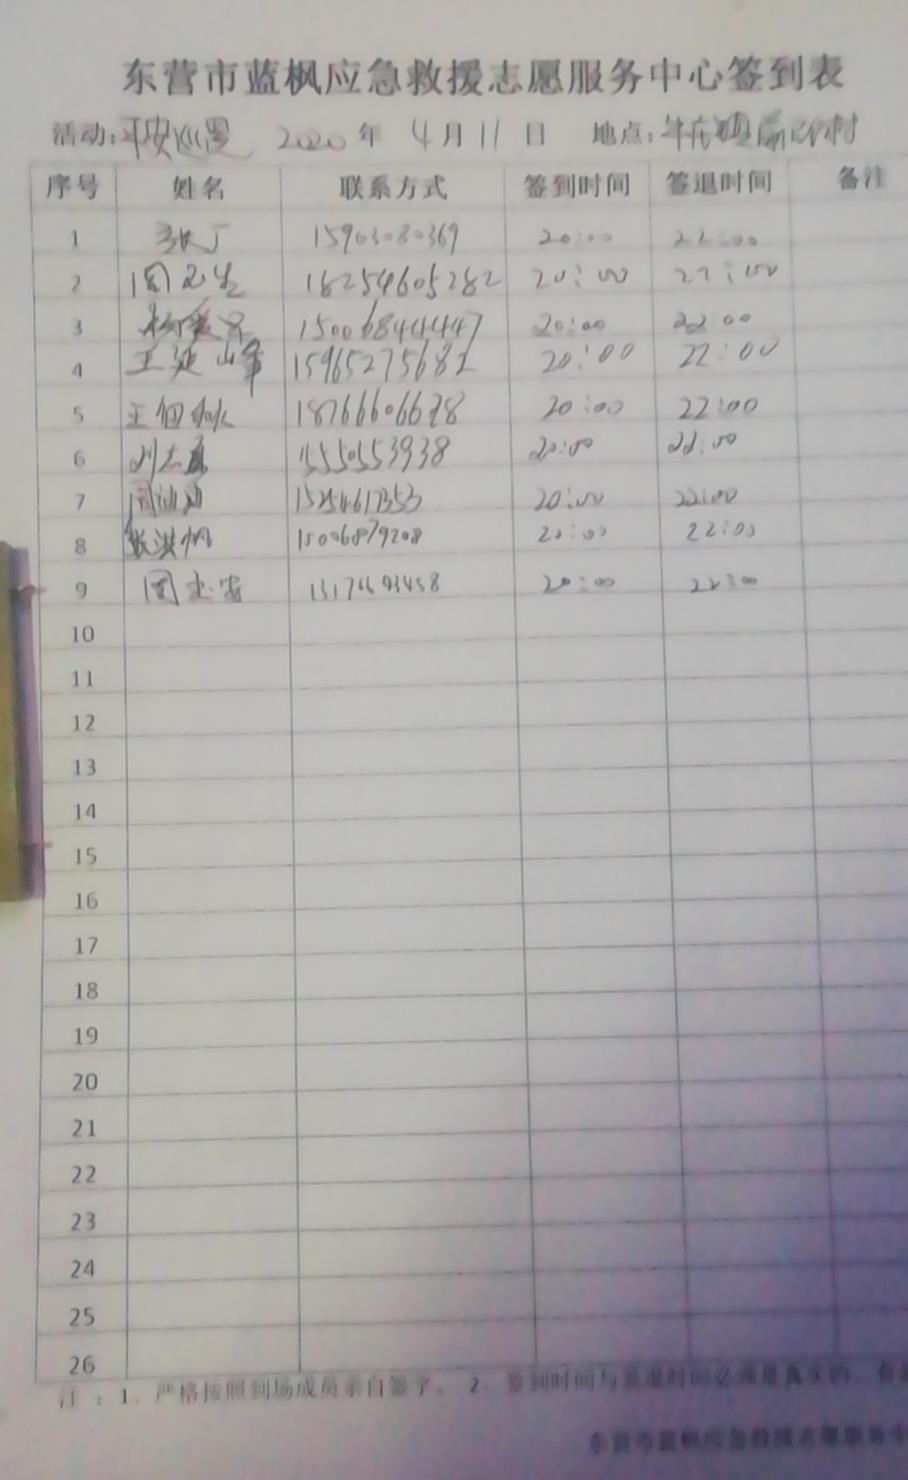 东营市蓝枫应急救援志愿服务中心签到表
活动:平安巡逻 2020年 4月11日 地点:
序号 姓名 联系方式 签到时间 签退时间 备注
1 张丁 15963080369 20:00 22:00
2 18254605282 20:00 22:00
3 15006844447 20:00 22:00
4 王延峰 15965275682 20:00 22:00
5 20:00 22:00
6 15550553938 20:00 22:00
7 15254617353 20:00 22:00
8 张洪帆 15006879208 20:00 22:00
9 20:00 22:00
10
11
12
13
14
15
16
17
18
19
20
21
22
23
24
25
26
注：1、严格按照到场成员亲自签字。 2、签到时间与签退时间必须是真实的，有
东营市蓝枫应急救援志愿服务中